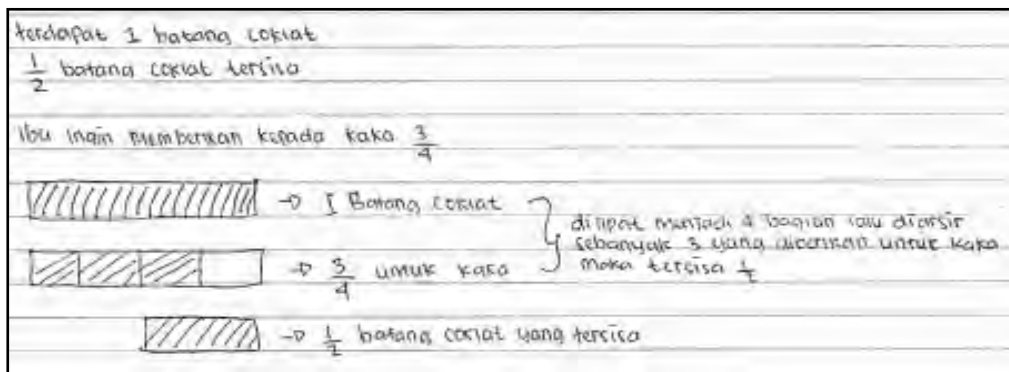 terdapat 1 batang coklat
1/2 batang coklat tersisa
Ibu ingin memberikan kepada kaka 3/4
→ 1 Batang coklat
dilipat menjadi 4 bagian lalu diarsir
sebanyak 3 yang diberikan untuk kaka
maka tersisa 1/2
→ 3/4 untuk kaka
→ 1/2 batang coklat yang tersisa